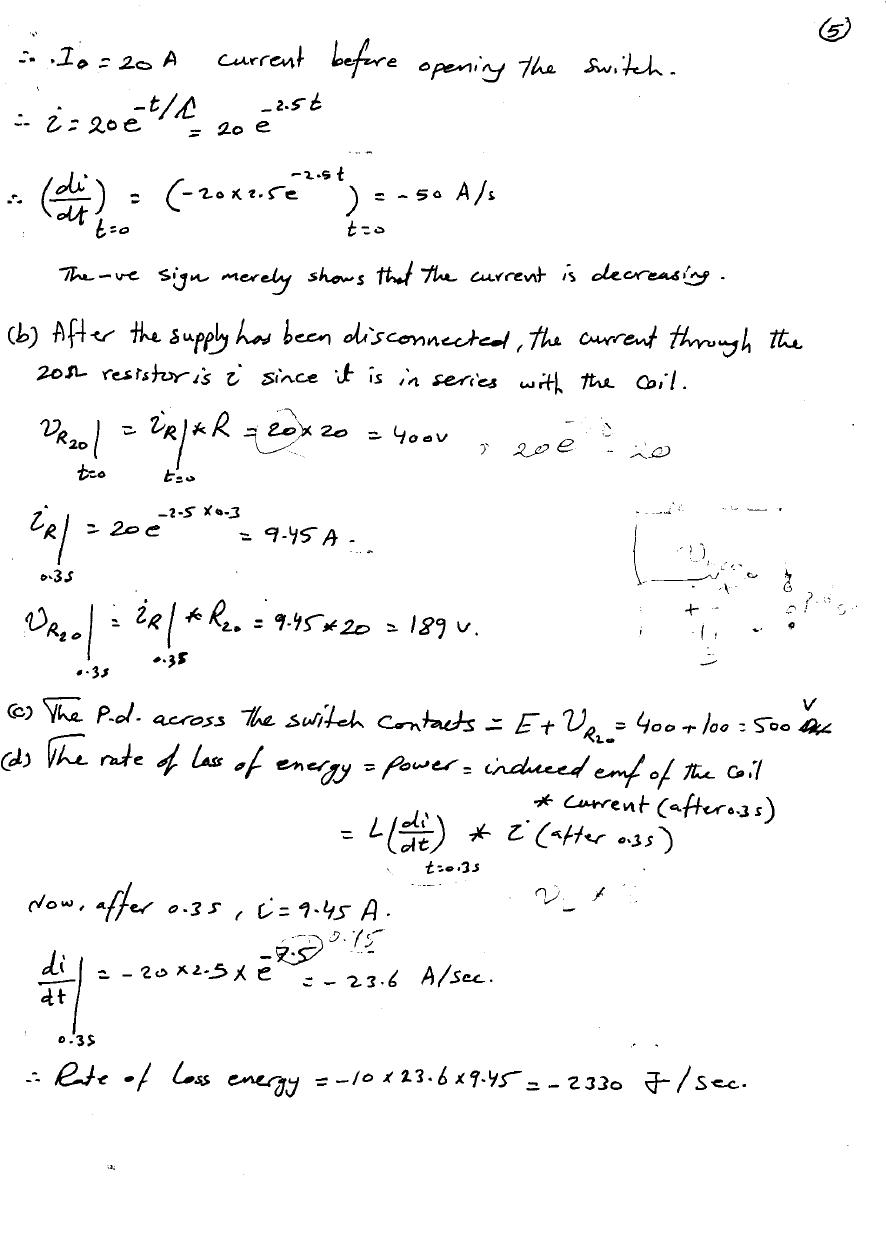 (5)
∴ I₀ = 20 A current before opening the switch.
∴ i = 20 e^{-t/τ} = 20 e^{-2.5t}
∴ (di/dt)_{t=0} = (-20 x 2.5 e^{-2.5t})_{t=0} = -50 A/s
The -ve sign merely shows that the current is decreasing.
(b) After the supply has been disconnected, the current through the
20Ω resistor is i since it is in series with the coil.
V_{R20}|_{t=0} = i_R|_{t=0} * R = 20 x 20 = 400V , 20e
i_R|_{0.3s} = 20 e^{-2.5 x 0.3} = 9.45 A.
V_{R20}|_{0.3s} = i_R|_{0.3s} * R₂₀ = 9.45 * 20 = 189 V.
(c) The p.d. across the switch contacts = E + V_{R20} = 400 + 100 = 500 V
(d) The rate of loss of energy = power = induced emf of the coil
* current (after 0.3s)
= L (di/dt)_{t=0.3s} * i (after 0.3s)
Now, after 0.3s, i = 9.45 A.
di/dt|_{0.3s} = -20 x 2.5 x e^{-7.5} = -23.6 A/sec.
0.75
∴ Rate of Loss energy = -10 x 23.6 x 9.45 = -2330 J/sec.